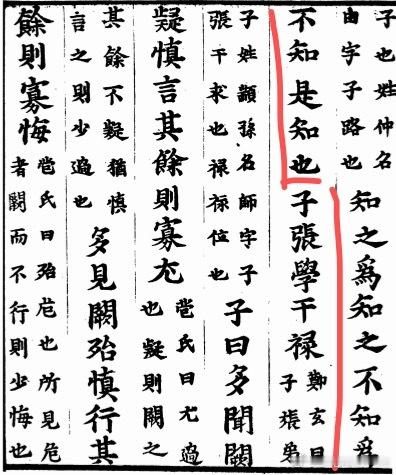 子也姓仲名
由字子路也
知之爲知之不知爲
不知是知也子張學干禄
鄭玄曰
子張弟
子姓顓孫名師字子
張干求也禄禄位也
子曰多聞闕
疑慎言其餘則寡尤
苞氏曰尤過
也疑則闕之
其餘不疑猶慎
言之則少過也
多見闕殆慎行其
餘則寡悔
苞氏曰殆危也所見危
者闕而不行則少悔也